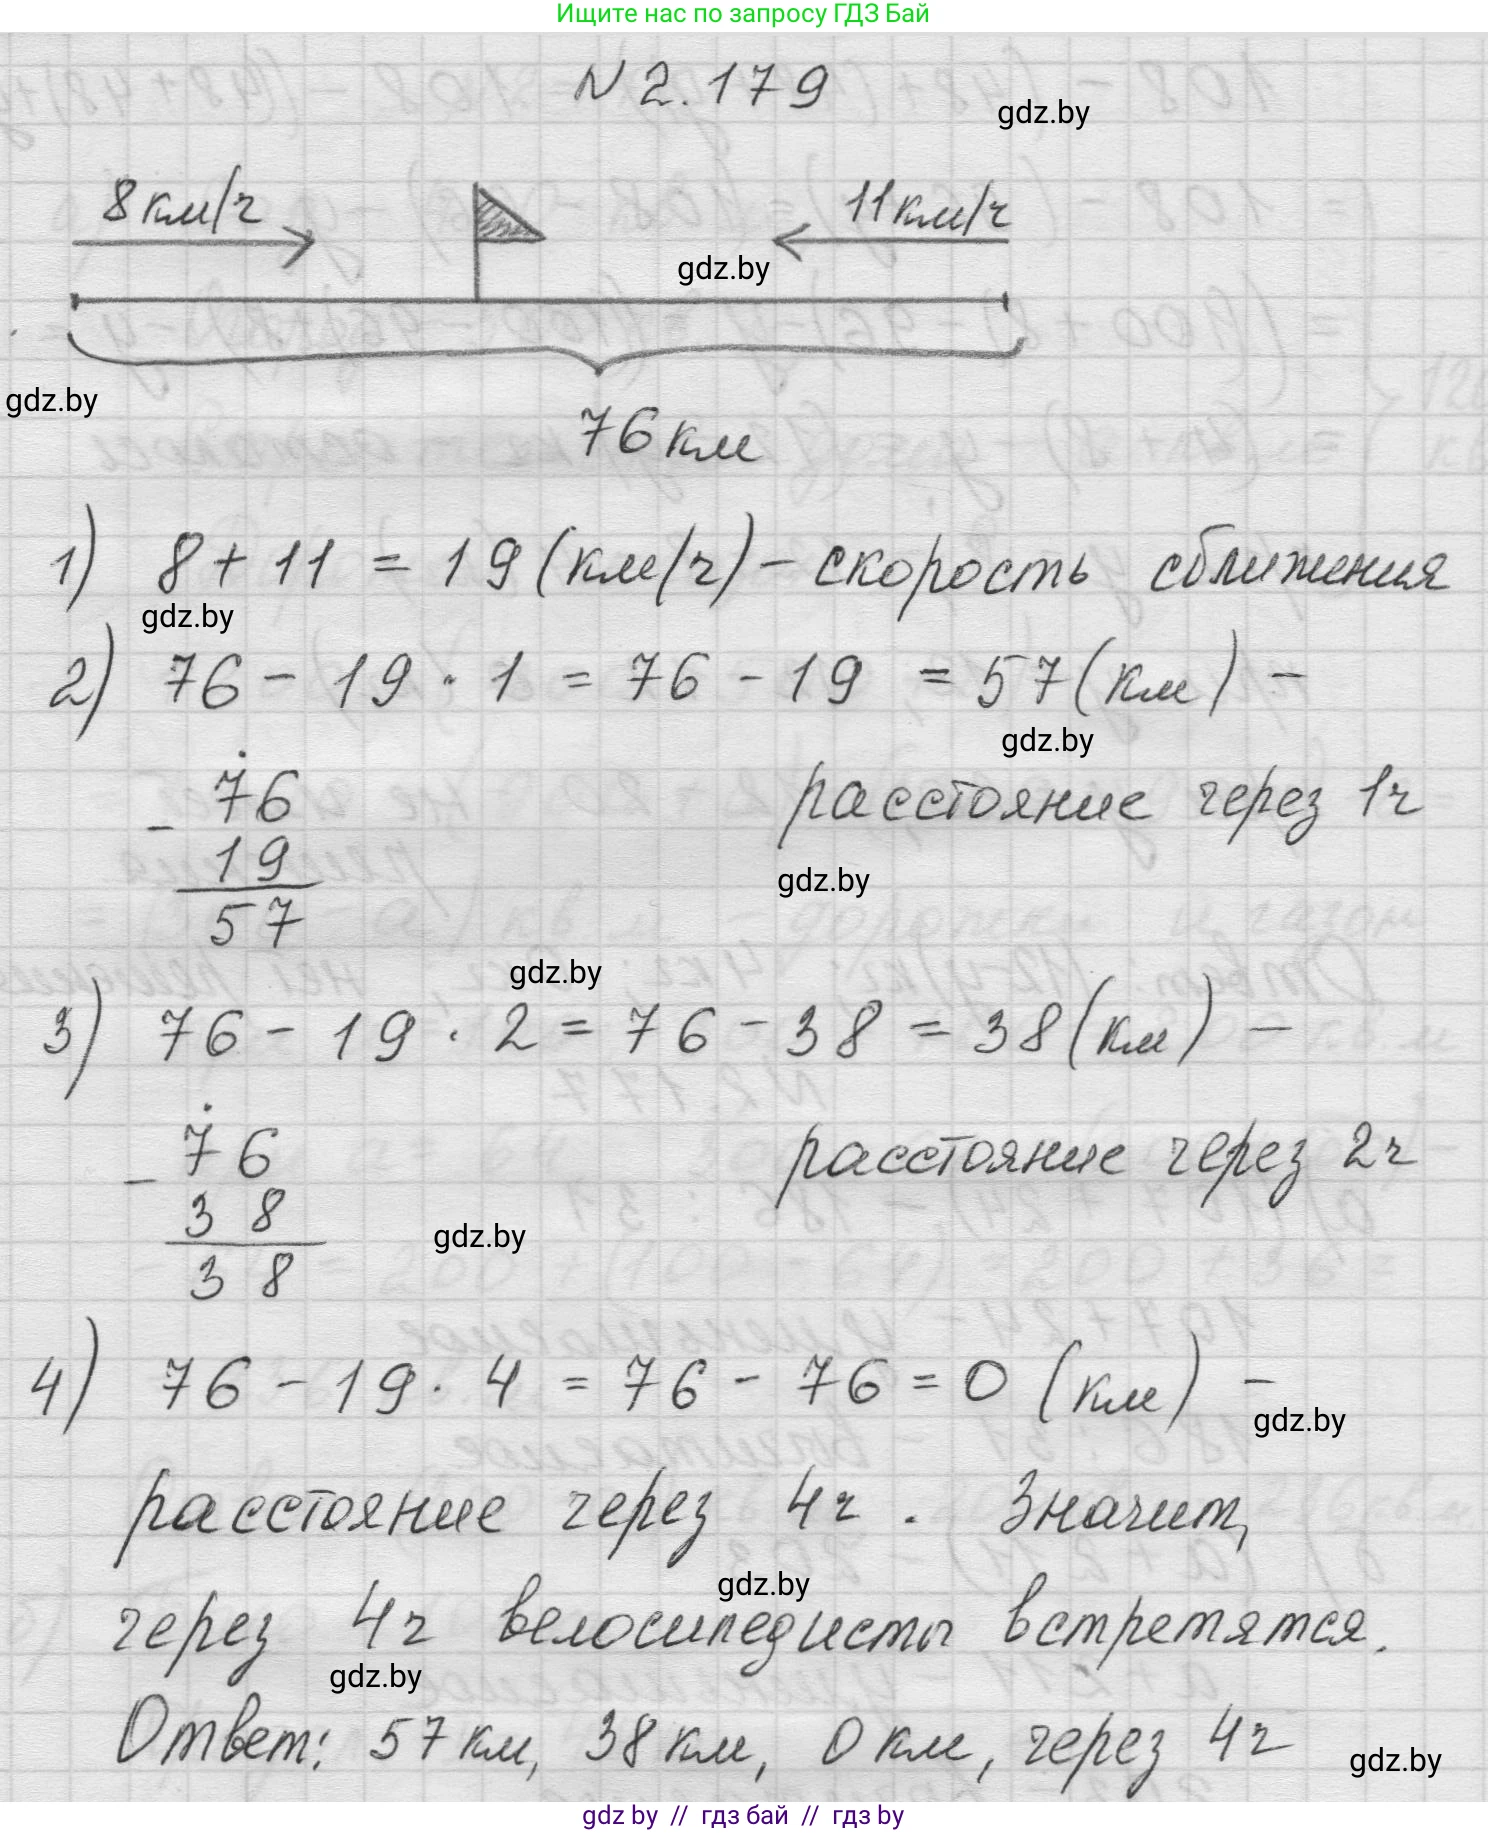 Ищите нас по запросу ГДЗ Бай
N 2.179
gdz.by
8 км/ч
11 км/ч
gdz.by
gdz.by
76 км
1) 8 + 11 = 19 (км/ч) - скорость сближения
gdz.by
2) 76 - 19 · 1 = 76 - 19 = 57 (км) -
gdz.by
расстояние через 1ч
- 76
19
57
gdz.by
gdz.by
3) 76 - 19 · 2 = 76 - 38 = 38 (км) -
расстояние через 2ч
- 76
38
38
gdz.by
4) 76 - 19 · 4 = 76 - 76 = 0 (км) -
gdz.by
расстояние через 4ч. Значит,
gdz.by
через 4ч велосипедисты встретятся.
gdz.by
Ответ: 57 км, 38 км, 0 км, через 4ч
gdz.by
gdz by // гдз бай // гдз by